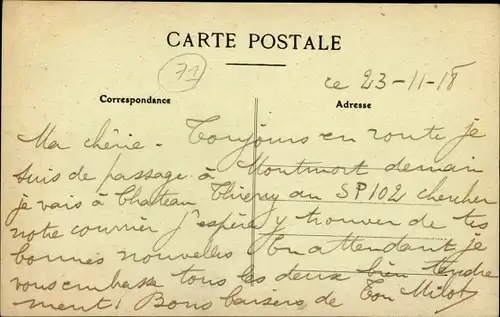 CARTE POSTALE
71
ce 23-11-18
Correspondance
Adresse
Ma chérie - Toujours en route je
suis de passage à Montmort demain
je vais à Chateau Thierry au SP102 chercher
notre courrier j'espère y trouver de tes
bonnes nouvelles En attendant je
vous embasse tous les deux bien tendre
ment! Bons baisers de Ton Milot